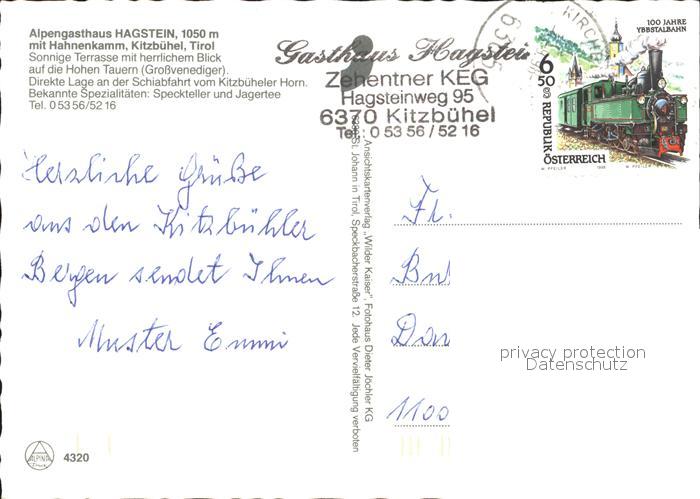 Alpengasthaus HAGSTEIN, 1050 m
mit Hahnenkamm, Kitzbühel, Tirol
Sonnige Terrasse mit herrlichem Blick
auf die Hohen Tauern (Großvenediger).
Direkte Lage an der Schiabfahrt vom Kitzbüheler Horn.
Bekannte Spezialitäten: Speckteller und Jagertee
Tel. 0 53 56/52 16
Gasthaus Hagstein
Zehentner KEG
Hagsteinweg 95
6370 Kitzbühel
Tel.: 0 53 56 / 52 16
100 JAHRE
YBBSTALBAHN
6
50
REPUBLIK
ÖSTERREICH
W. PFEILER 1998 W. PFEILER
Herzliche Grüße
aus den Kitzbühler
Bergen sendet Ihnen
Muster Emmi
Ansichtskartenverlag „Wilder Kaiser", Fotohaus Dieter Jöchler KG
6380 St. Johann in Tirol, Speckbacherstraße 12. Jede Vervielfältigung verboten
Fr.
Don
1100
privacy protection
Datenschutz
ALPINA
4320